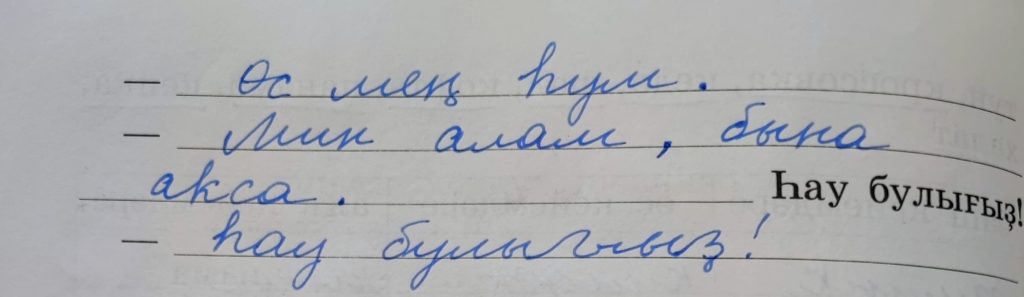 — Өс мең һум.
— Мин алам, бына
акса. Һау булығыҙ!
— Һау булығыҙ!